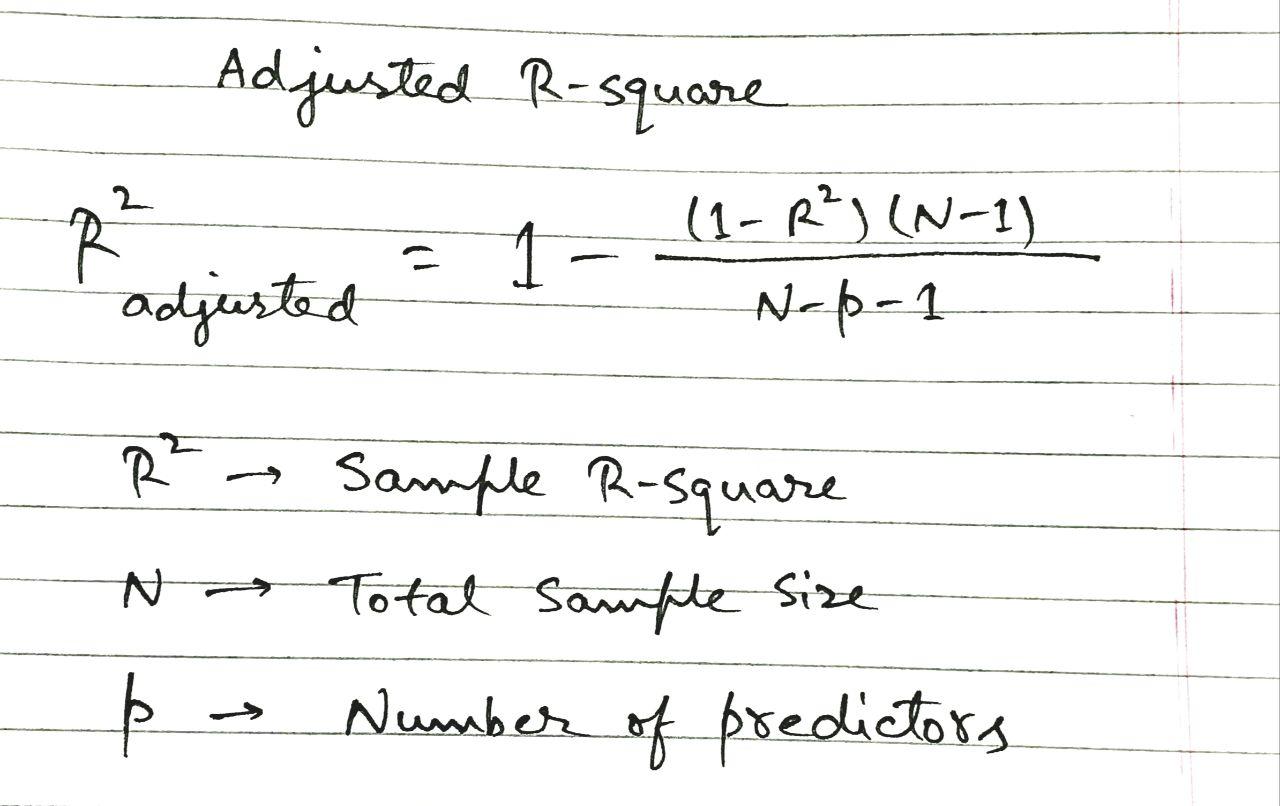 Adjusted R-square
R² adjusted = 1 - (1-R²)(N-1) / N-p-1
R² → Sample R-square
N → Total Sample Size
p → Number of predictors